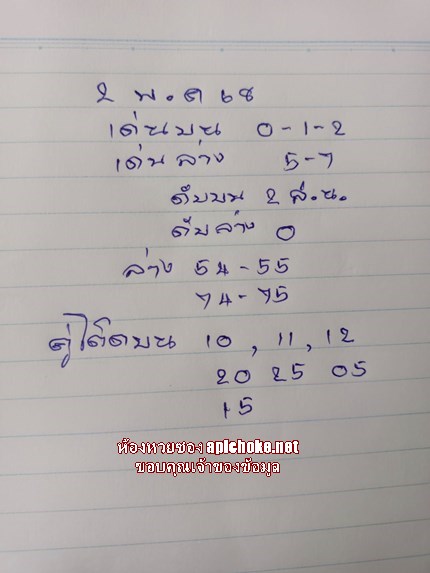 2 พ.ค 68
เด่นบน 0-1-2
เด่นล่าง 5-7
ดับบน 2 ส.น.
ดับล่าง 0
ล่าง 54-55
74-75
คู่โต๊ดบน 10, 11, 12
20 25 05
15
ห้องหวยซอง apichoke.net
ขอบคุณเจ้าของข้อมูล